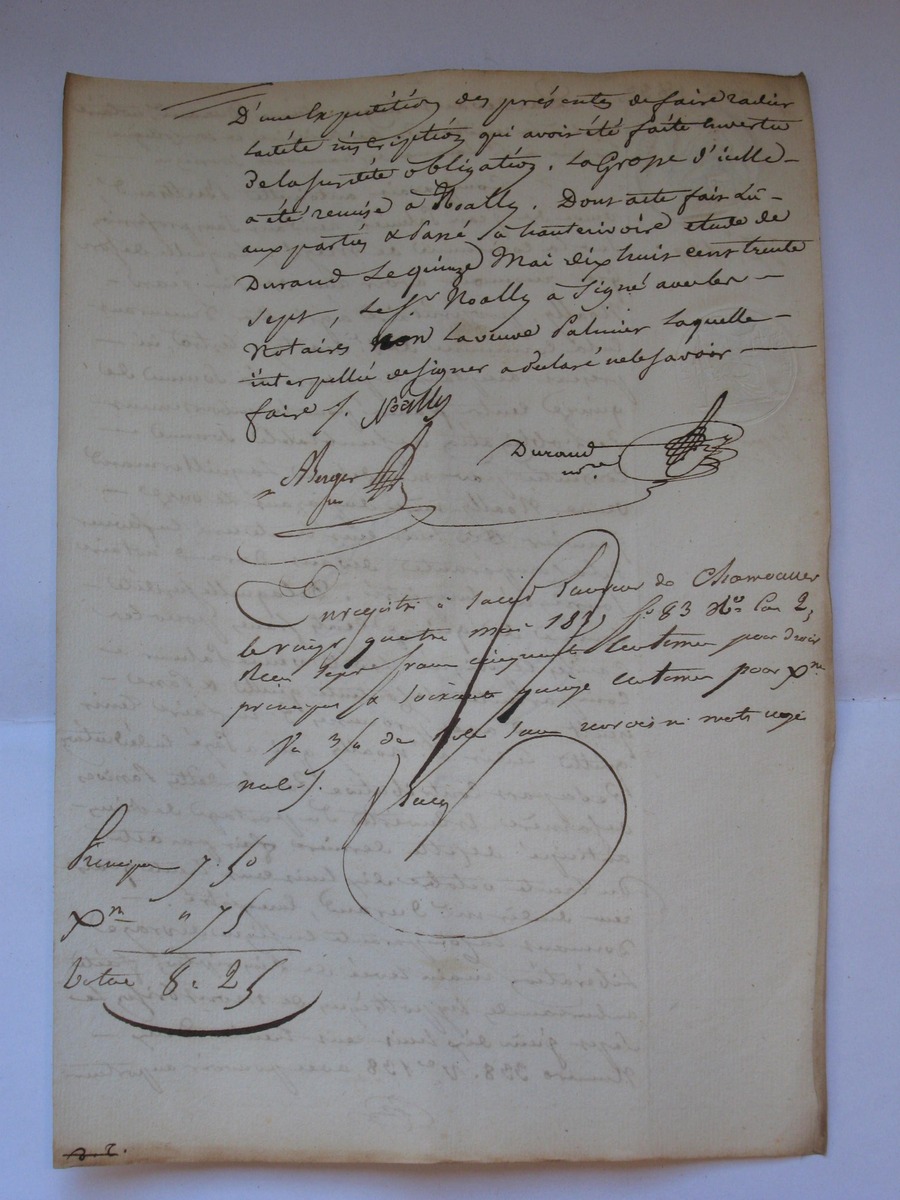 D'une Expédition des présentes de faire radier
ladite inscription qui avoit été faite en vertu
de la susdite obligation. La Grosse d'icelle
a été remise à Noally. Dont acte fait Lu
aux parties & Passé à hauterivoire étude de
Durand Le quinze Mai dix huit cent trente
sept, Le Sr Noally à signé avec les
Notaires non La veuve Palmier Laquelle
interpellée de signer a déclaré ne le savoir
faire /. Noally
ABerger
Durand
nre
Enregistré à Saint Laurent de Chamousset
le vingt quatre mai 1837 fo 83 Ro Cas 2,
Reçu sept francs cinquante centimes pour droit
principal & soixante quinze centimes pour Xme
nuls /.
Principal 7. 50
Xme " 75
Total 8. 25